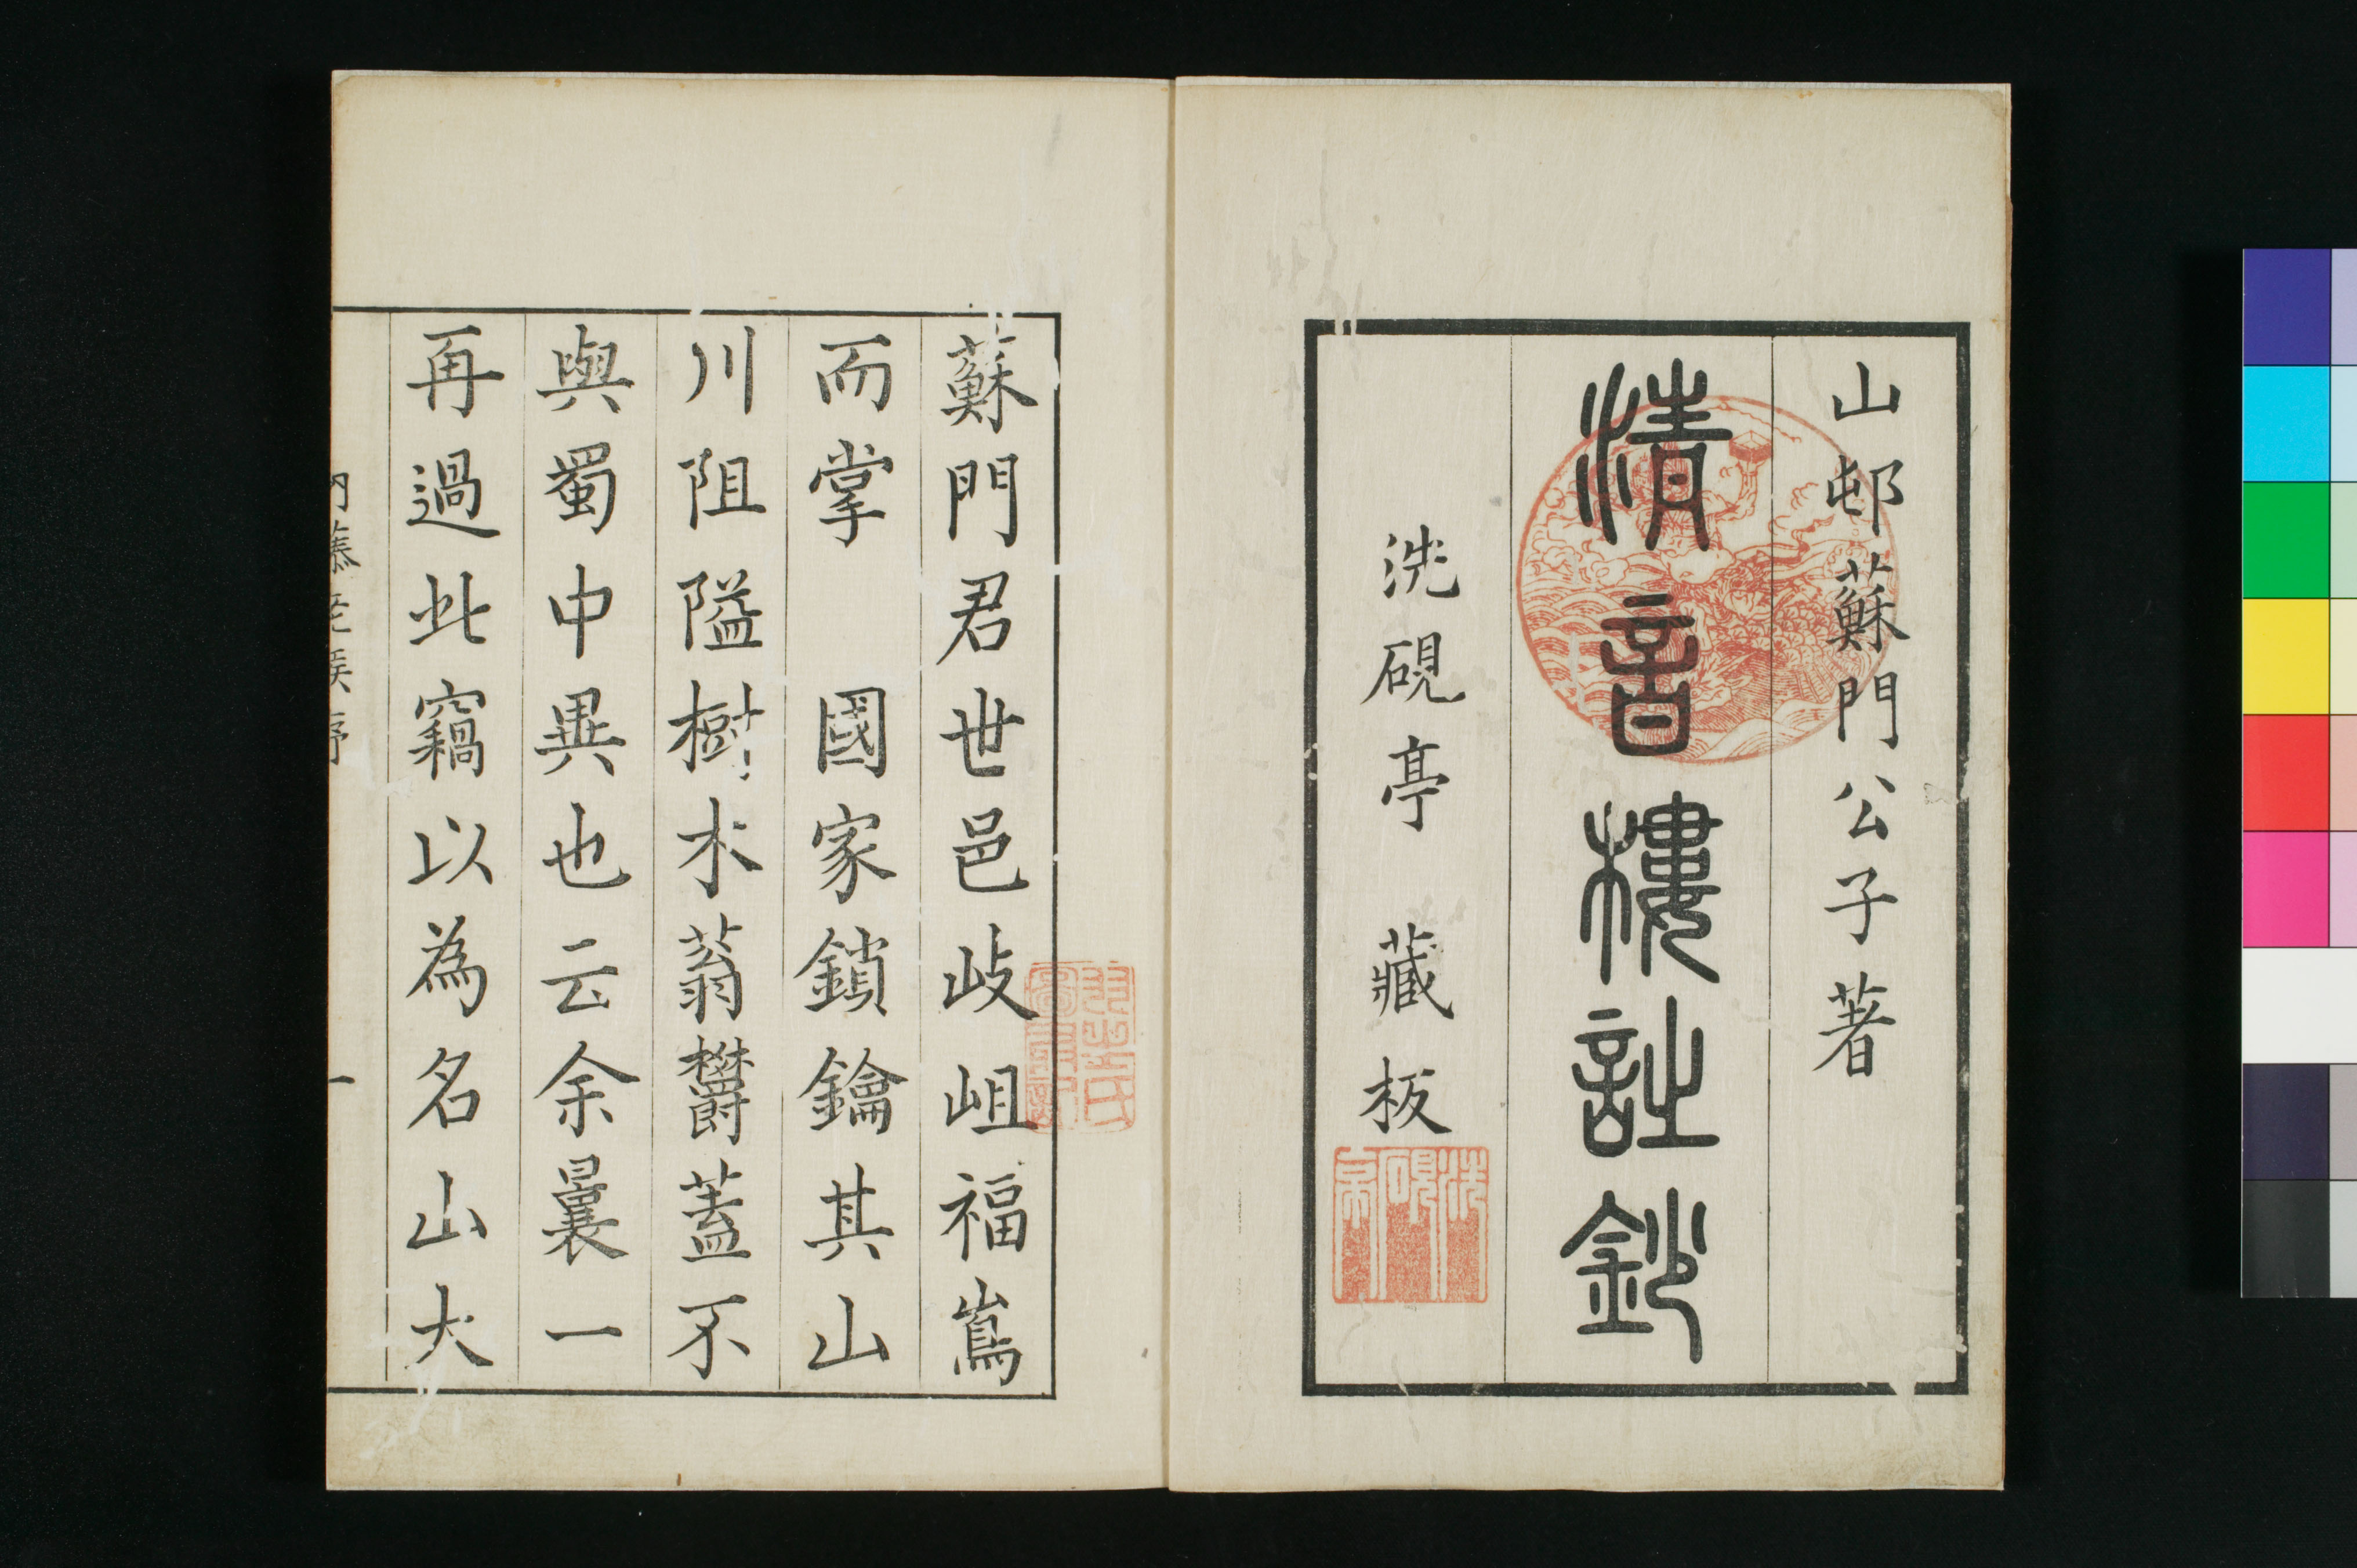 山邨蘇門公子著
清音樓詩鈔
洗硯亭　藏板
蘇門君世邑歧岨福嶌
而掌　國家鎖鑰其山
川阻隘樹木蓊欝蓋不
與蜀中異也云余曩一
再過此竊以為名山大
一